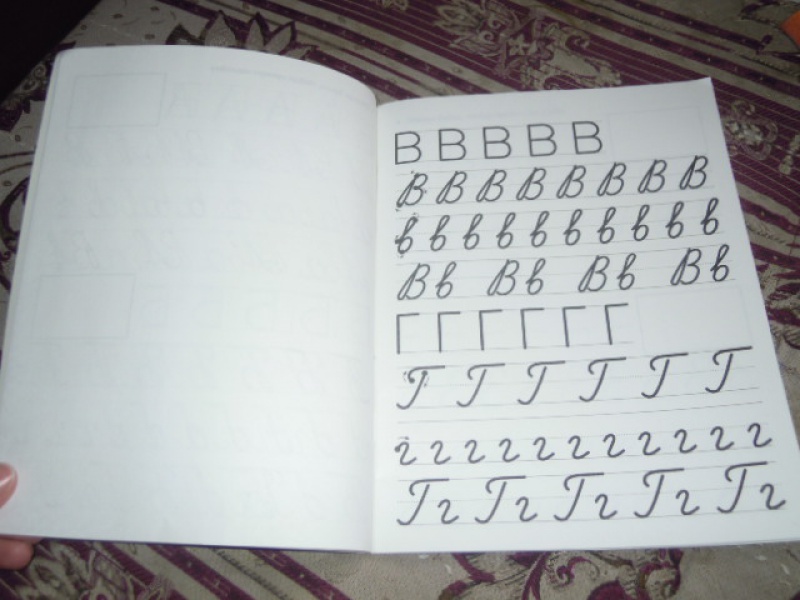 В В В В В
В В В В В В В В
в в в в в в в в в в
Вв Вв Вв Вв
Г Г Г Г Г Г
Г Г Г Г Г Г
г г г г г г г г г г
Гг Гг Гг Гг Гг